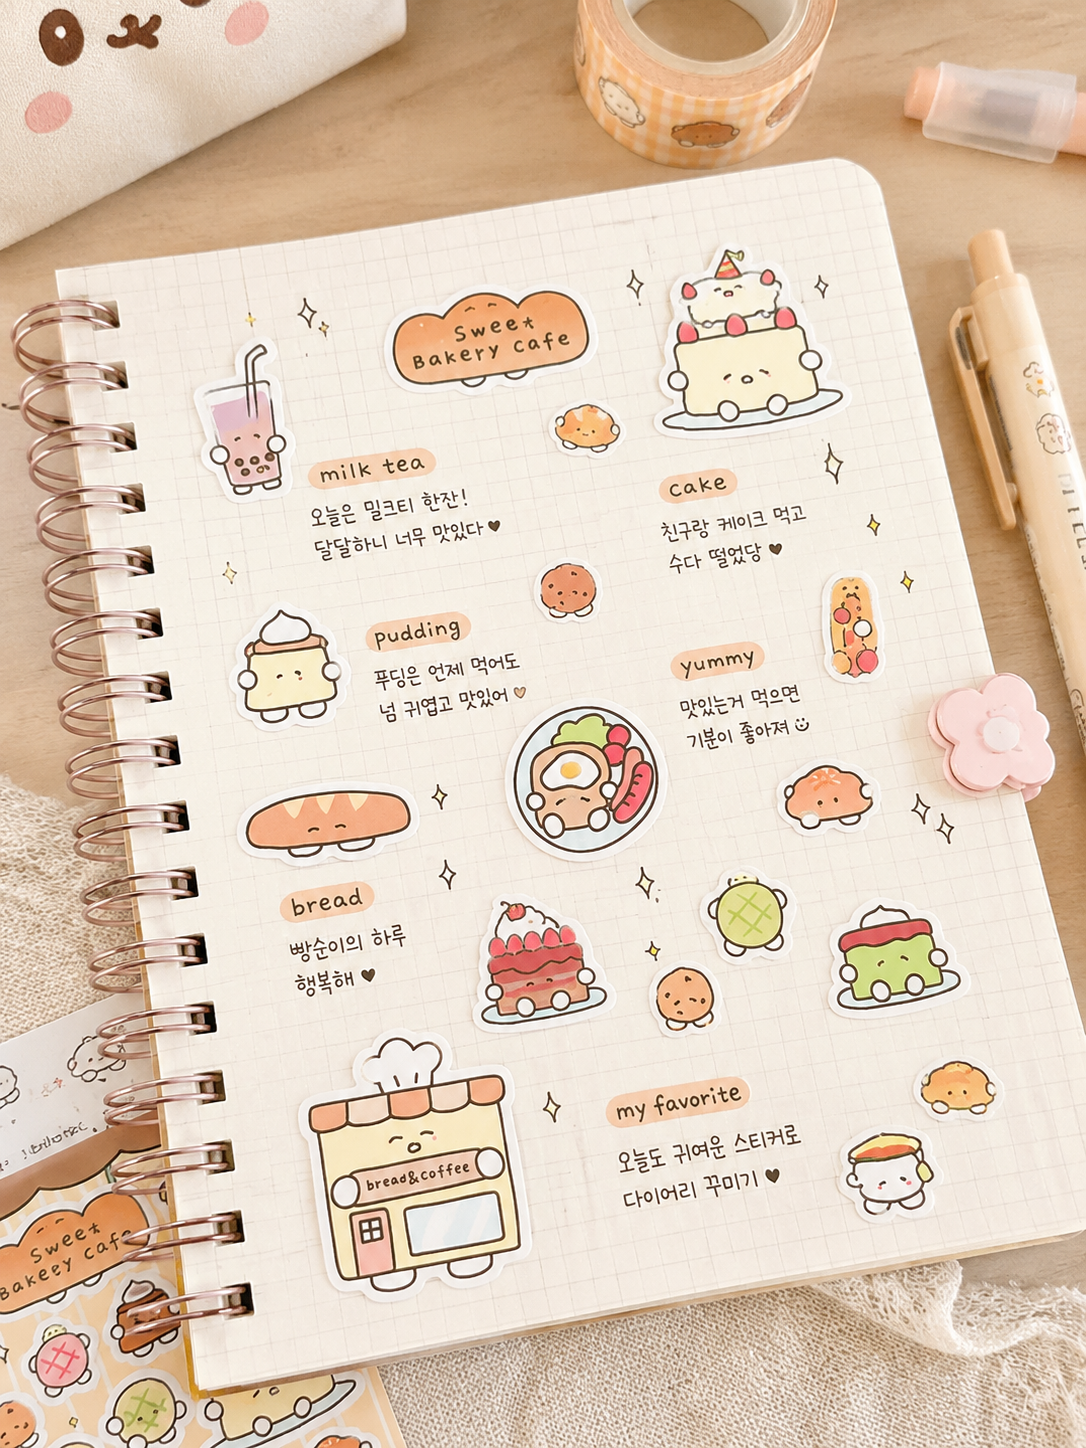 Sweet
Bakery Cafe
milk tea
오늘은 밀크티 한잔!
달달하니 너무 맛있다♥
cake
친구랑 케이크 먹고
수다 떨었당 ♥
pudding
푸딩은 언제 먹어도
넘 귀엽고 맛있어♡
yummy
맛있는거 먹으면
기분이 좋아져☺
bread
빵순이의 하루
행복해 ♥
bread&coffee
my favorite
오늘도 귀여운 스티커로
다이어리 꾸미기 ♥
Sweet
Bakeey cafe